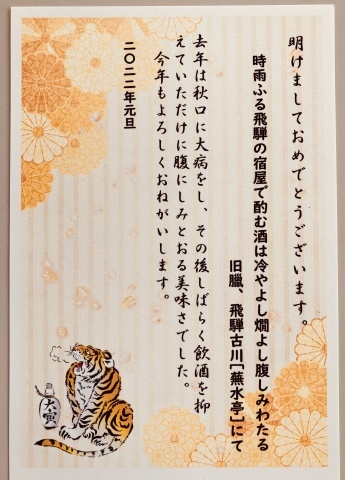 明けましておめでとうございます。
時雨ふる飛騨の宿屋で酌む酒は冷やよし燗よし腹しみわたる
旧臘、飛騨古川［蕪水亭］にて
去年は秋口に大病をし、その後しばらく飲酒を抑
えていただけに腹にしみとおる美味さでした。
今年もよろしくおねがいします。
二〇二二年元旦
大寅